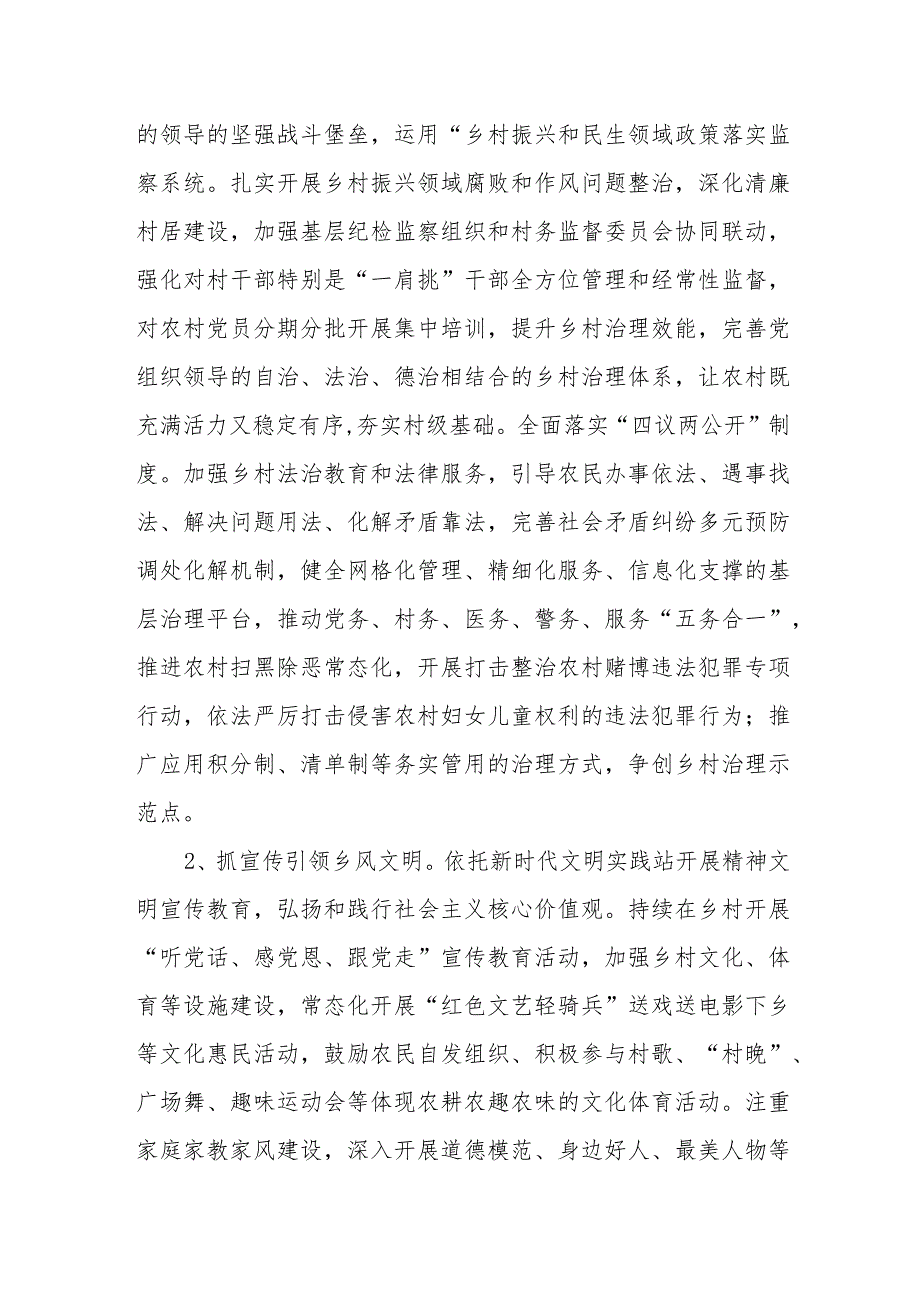 的领导的坚强战斗堡垒，运用“乡村振兴和民生领域政策落实监
察系统。扎实开展乡村振兴领域腐败和作风问题整治，深化清廉
村居建设，加强基层纪检监察组织和村务监督委员会协同联动，
强化对村干部特别是“一肩挑”干部全方位管理和经常性监督，
对农村党员分期分批开展集中培训，提升乡村治理效能，完善党
组织领导的自治、法治、德治相结合的乡村治理体系，让农村既
充满活力又稳定有序,夯实村级基础。全面落实“四议两公开”制
度。加强乡村法治教育和法律服务，引导农民办事依法、遇事找
法、解决问题用法、化解矛盾靠法，完善社会矛盾纠纷多元预防
调处化解机制，健全网格化管理、精细化服务、信息化支撑的基
层治理平台，推动党务、村务、医务、警务、服务“五务合一”，
推进农村扫黑除恶常态化，开展打击整治农村赌博违法犯罪专项
行动，依法严厉打击侵害农村妇女儿童权利的违法犯罪行为；推
广应用积分制、清单制等务实管用的治理方式，争创乡村治理示
范点。
2、抓宣传引领乡风文明。依托新时代文明实践站开展精神文
明宣传教育，弘扬和践行社会主义核心价值观。持续在乡村开展
“听党话、感党恩、跟党走”宣传教育活动，加强乡村文化、体
育等设施建设，常态化开展“红色文艺轻骑兵”送戏送电影下乡
等文化惠民活动，鼓励农民自发组织、积极参与村歌、“村晚”、
广场舞、趣味运动会等体现农耕农趣农味的文化体育活动。注重
家庭家教家风建设，深入开展道德模范、身边好人、最美人物等